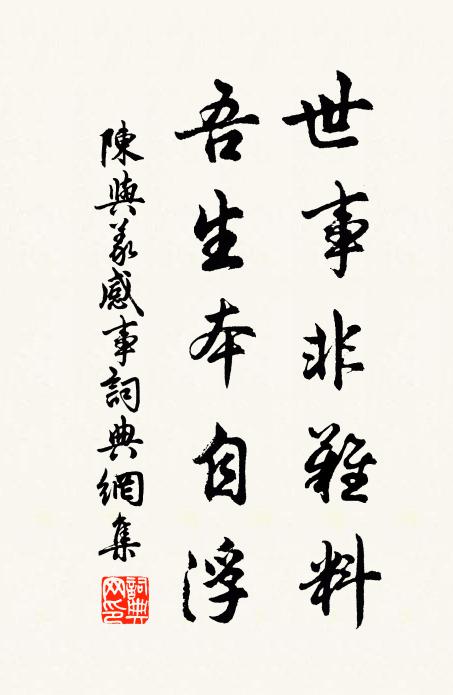 世事非難料
吾生本自浮
陳與義感事詞典網集
詞典网印